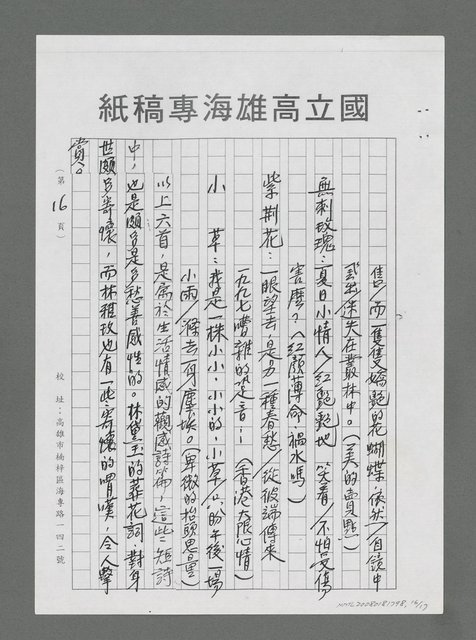 國立高雄海專稿紙
售／而一隻隻嬌艷的花蝴蝶，依然／自鏡中
飛出迷失在叢林中。（美的賣點）
無刺玫瑰：夏日小情人／紅艷艷地 笑著／不怕受傷
害麼？（紅顏薄命，禍水嗎）
紫荊花：一眼望去是另一種春愁／從彼端傳來
一九九七嘈雜的跫音…（香港大限心情）
小 草：我是一株小小，小小的，小草／只盼午後一場
小雨／滌去身塵埃。（卑微的抬頭思量）
以上六首，是屬於生活情感的觀感詩篇，這些短詩
中，也是頗多是多愁善感性的。林黛玉的葬花詞對身
世頗多寄懷，而林雅玫也有一些寄懷的喟嘆，令人擊
賞。
（第 16 頁）
校 址：高雄市楠梓區海專路一四二號
NMTL20080181798, 16/17